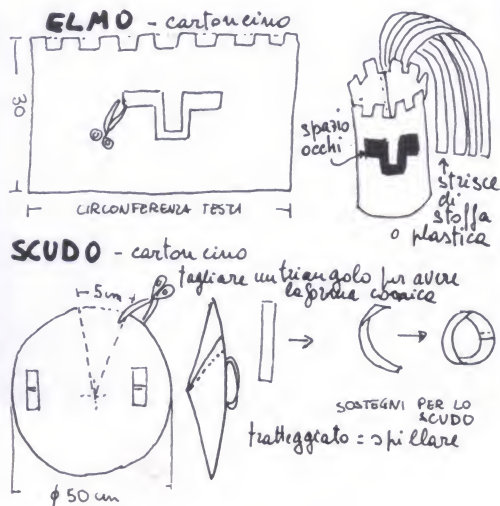 ELMO - cartoncino
30
CIRCONFERENZA TESTA
spazio
occhi
strisce
di
stoffa
o plastica
SCUDO - cartoncino
tagliare un triangolo per avere
la forma conica
5 cm
SOSTEGNI PER LO
SCUDO
tratteggiato = spillare
φ 50 cm